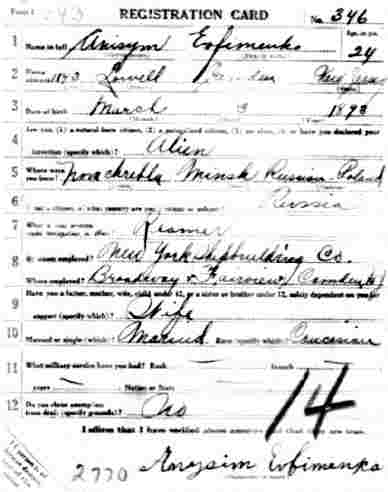 Form 1
REGISTRATION CARD No. 346
1 Name in full Anisym Evfimenko Age, in yrs. 24
2 Home address 1873 Lowell Camden New Jersey
3 Date of birth March 3 1893
4 Are you (1) a natural-born citizen, (2) a naturalized citizen, (3) an alien, (4) or have you declared your
intention (specify which)? Alien
5 Where were you born? Minsk Russian Poland
6 If not a citizen, of what country are you a citizen or subject? Russia
7 What is your present trade, occupation, or office? Reamer
8 By whom employed? New York Shipbuilding Co.
Where employed? Broadway & Fairview, Camden NJ
9 Have you a father, mother, wife, child under 12, or a sister or brother under 12, solely dependent on you for
support (specify which)? Wife
10 Married or single (which)? Married Race (specify which)? Caucasian
11 What military service have you had? Rank — branch —
years — Nation or State
12 Do you claim exemption from draft (specify grounds)? No
I affirm that I have verified above answers and that they are true.
14
2770 Anysim Evfimenko